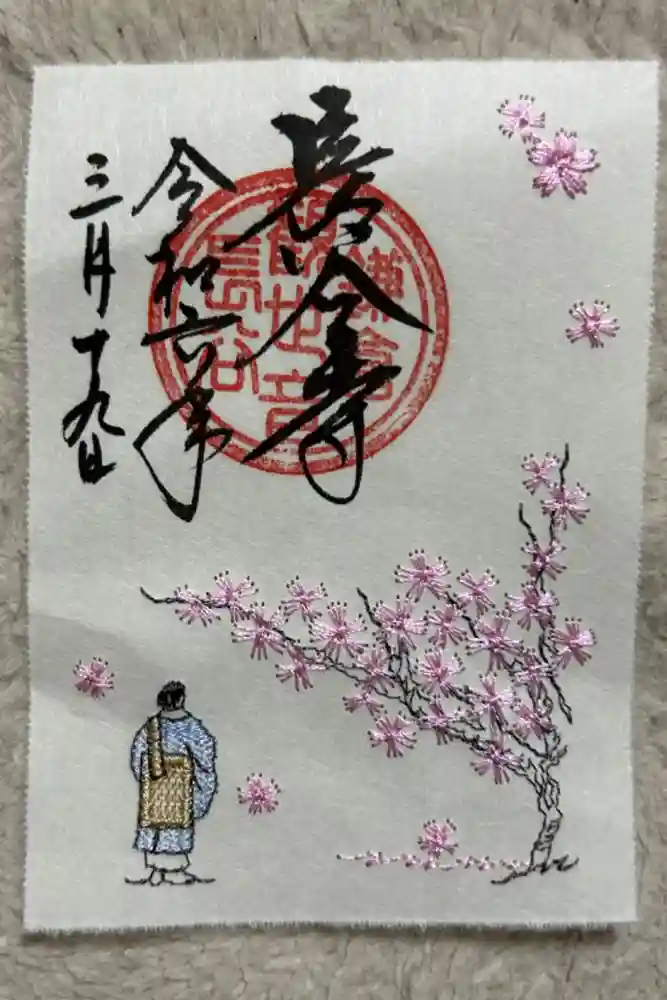 長谷寺
令和六年
三月十九日
鎌倉
觀世音
長谷